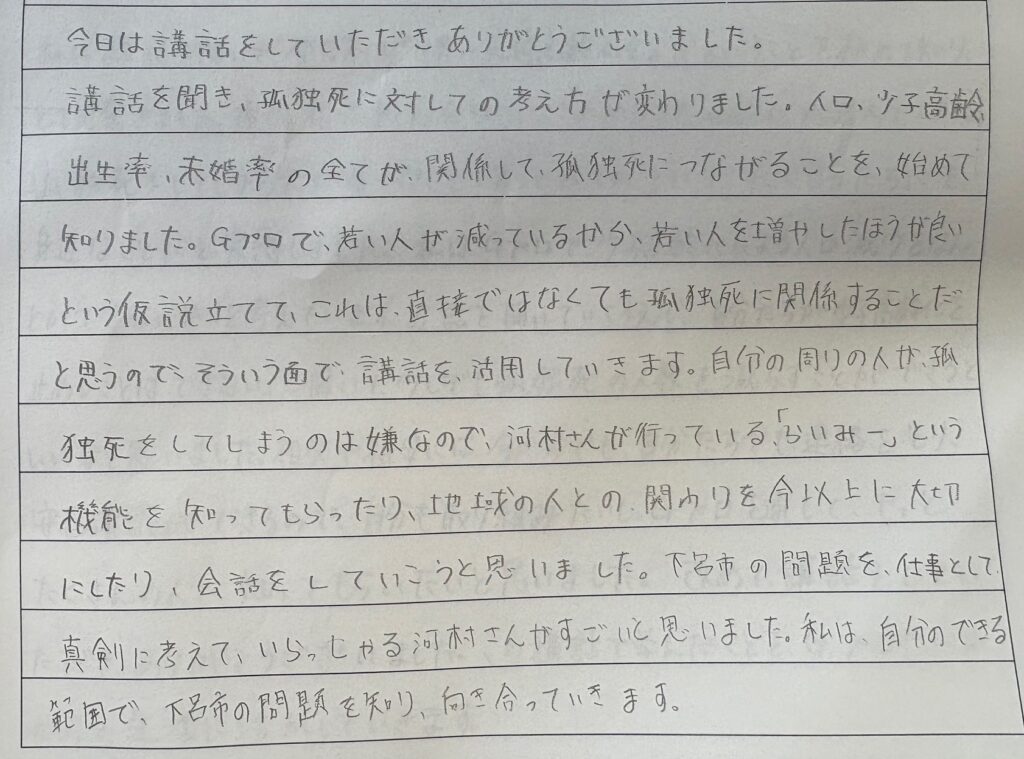 今日は講話をしていただきありがとうございました。
講話を聞き、孤独死に対しての考え方が変わりました。人口、少子高齢、
出生率、未婚率の全てが、関係して、孤独死につながることを、始めて
知りました。Gプロで、若い人が減っているから、若い人を増やしたほうが良い
という仮説立てて、これは、直接ではなくても孤独死に関係することだ
と思うので、そういう面で、講話を、活用していきます。自分の周りの人が、孤
独死をしてしまうのは嫌なので、河村さんが行っている「らいみー」という
機能を知ってもらったり、地域の人との関わりを今以上に大切
にしたり、会話をしていこうと思いました。下呂市の問題を、仕事として、
真剣に考えて、いらっしゃる河村さんがすごいと思いました。私は、自分のできる
範囲で、下呂市の問題を知り、向き合っていきます。